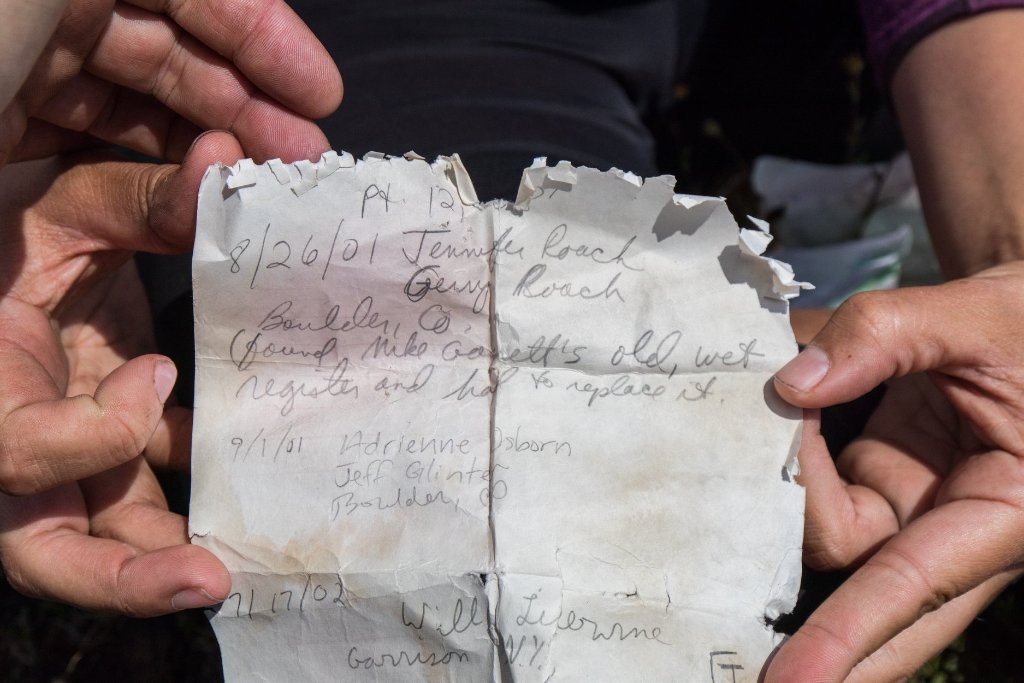 Pt. 12
8/26/01 Jennifer Roach
Gerry Roach
Boulder, Co.
(found Mike Garrett's old, wet
register and had to replace it.
9/1/01 Adrienne Osborn
Jeff Glinter
Boulder, CO
7/17/02
Will
Garrison N.Y.